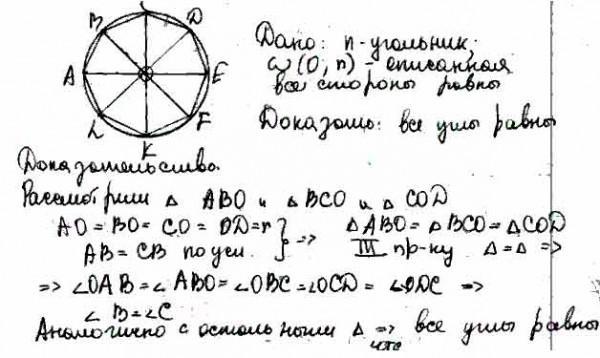 C
B D
A E
L F
K
Дано: n-угольник,
ω(O, r) - описанная
все стороны равны
Доказать: все углы равны
Доказательство.
Рассмотрим Δ ABO и Δ BCO и Δ COD
AO = BO = CO = OD = r } => ΔABO = ΔBCO = ΔCOD
AB = CB по усл. III пр-ку Δ = Δ =>
=> ∠OAB = ∠ABO = ∠OBC = ∠OCD = ∠ODC =>
∠B = ∠C
Аналогично с остальными Δ => что все углы равны